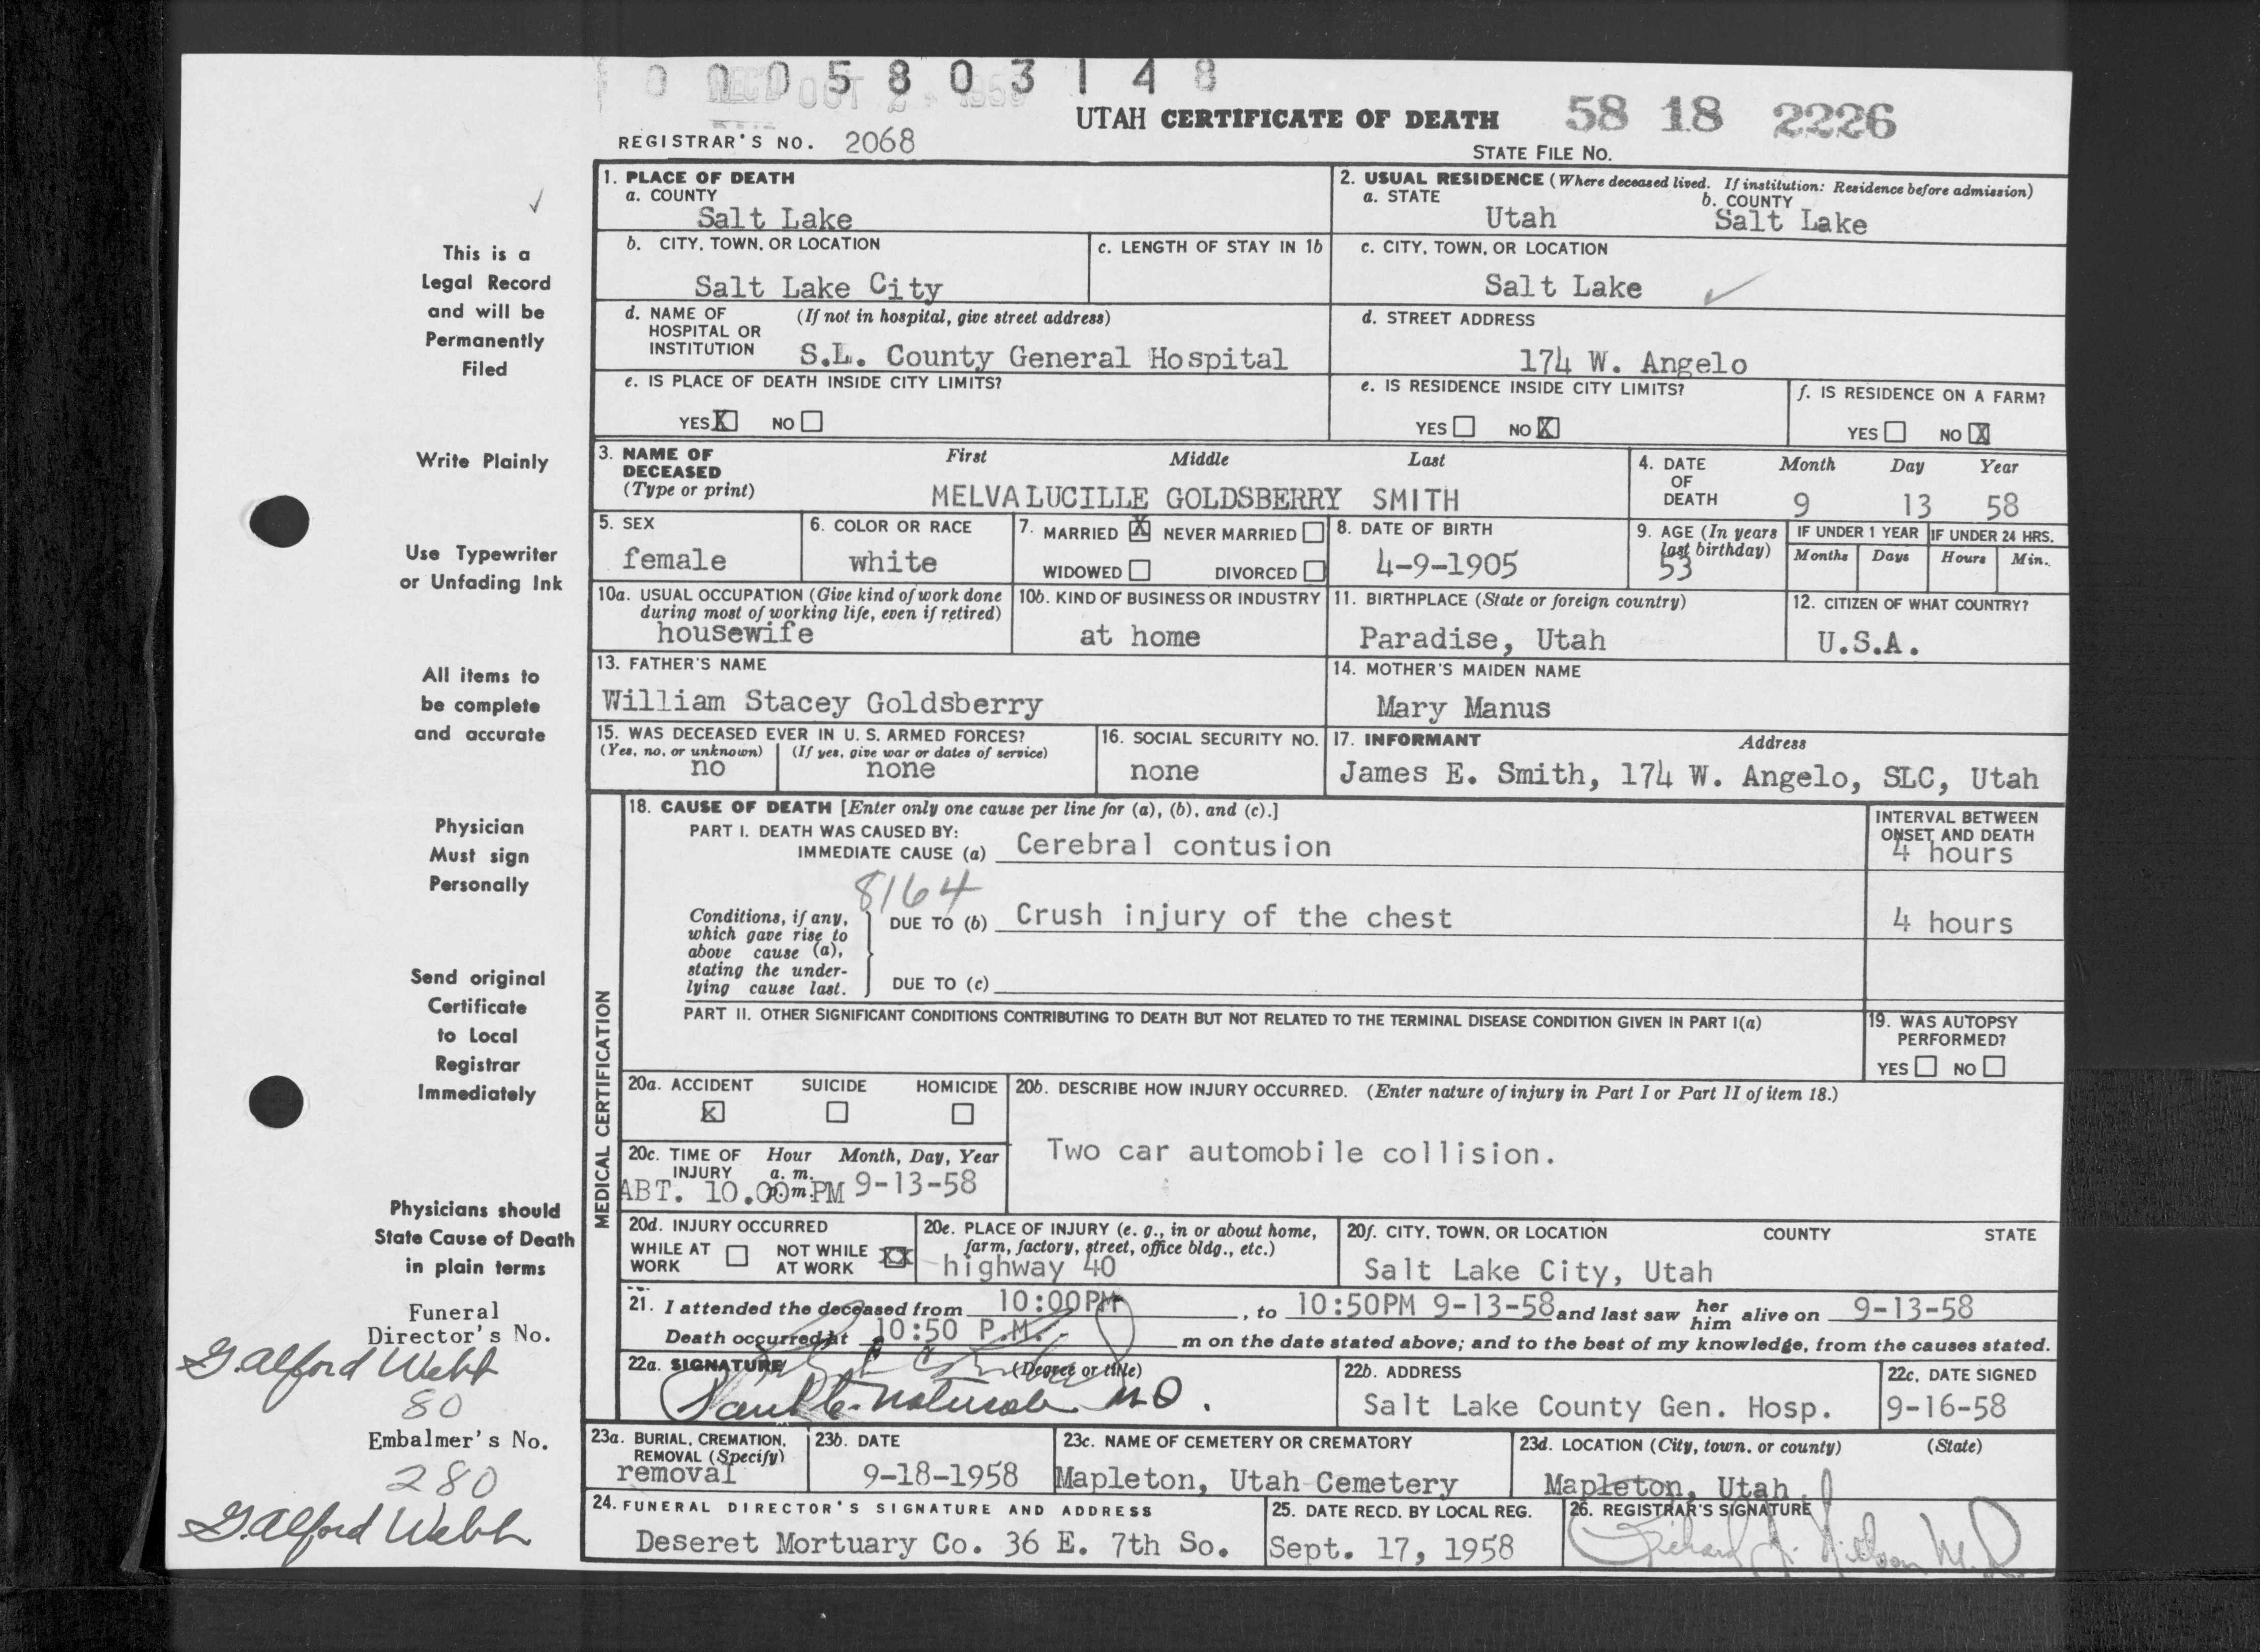 0 0 0 5 8 0 3 1 4 8
REC'D OCT 2 1958
UTAH CERTIFICATE OF DEATH 58 18 2226
REGISTRAR'S NO. 2068
STATE FILE NO.
1. PLACE OF DEATH
a. COUNTY
Salt Lake
2. USUAL RESIDENCE (Where deceased lived. If institution: Residence before admission)
a. STATE b. COUNTY
Utah Salt Lake
b. CITY, TOWN, OR LOCATION
Salt Lake City
c. LENGTH OF STAY IN 1b
c. CITY, TOWN, OR LOCATION
Salt Lake
d. NAME OF (If not in hospital, give street address)
HOSPITAL OR
INSTITUTION S.L. County General Hospital
d. STREET ADDRESS
174 W. Angelo
e. IS PLACE OF DEATH INSIDE CITY LIMITS?
YES X NO
e. IS RESIDENCE INSIDE CITY LIMITS?
YES NO X
f. IS RESIDENCE ON A FARM?
YES NO X
3. NAME OF First Middle Last
DECEASED
(Type or print) MELVA LUCILLE GOLDSBERRY SMITH
4. DATE Month Day Year
OF
DEATH 9 13 58
5. SEX
female
6. COLOR OR RACE
white
7. MARRIED X NEVER MARRIED
WIDOWED DIVORCED
8. DATE OF BIRTH
4-9-1905
9. AGE (In years
last birthday)
53
IF UNDER 1 YEAR IF UNDER 24 HRS.
Months Days Hours Min.
10a. USUAL OCCUPATION (Give kind of work done
during most of working life, even if retired)
housewife
10b. KIND OF BUSINESS OR INDUSTRY
at home
11. BIRTHPLACE (State or foreign country)
Paradise, Utah
12. CITIZEN OF WHAT COUNTRY?
U.S.A.
13. FATHER'S NAME
William Stacey Goldsberry
14. MOTHER'S MAIDEN NAME
Mary Manus
15. WAS DECEASED EVER IN U. S. ARMED FORCES?
(Yes, no, or unknown) (If yes, give war or dates of service)
no none
16. SOCIAL SECURITY NO.
none
17. INFORMANT Address
James E. Smith, 174 W. Angelo, SLC, Utah
MEDICAL CERTIFICATION
18. CAUSE OF DEATH [Enter only one cause per line for (a), (b), and (c).]
PART I. DEATH WAS CAUSED BY:
IMMEDIATE CAUSE (a) Cerebral contusion
INTERVAL BETWEEN
ONSET AND DEATH
4 hours
8164
Conditions, if any,
which gave rise to
above cause (a),
stating the under-
lying cause last.
DUE TO (b) Crush injury of the chest
4 hours
DUE TO (c)
PART II. OTHER SIGNIFICANT CONDITIONS CONTRIBUTING TO DEATH BUT NOT RELATED TO THE TERMINAL DISEASE CONDITION GIVEN IN PART I(a)
19. WAS AUTOPSY
PERFORMED?
YES NO
20a. ACCIDENT SUICIDE HOMICIDE
X
20b. DESCRIBE HOW INJURY OCCURRED. (Enter nature of injury in Part I or Part II of item 18.)
Two car automobile collision.
20c. TIME OF Hour Month, Day, Year
INJURY a. m.
p. m.
ABT. 10.00 PM 9-13-58
20d. INJURY OCCURRED
WHILE AT NOT WHILE XX
WORK AT WORK
20e. PLACE OF INJURY (e. g., in or about home,
farm, factory, street, office bldg., etc.)
highway 40
20f. CITY, TOWN, OR LOCATION COUNTY STATE
Salt Lake City, Utah
21. I attended the deceased from 10:00PM, to 10:50PM 9-13-58 and last saw her him alive on 9-13-58
Death occurred at 10:50 P.M. m on the date stated above; and to the best of my knowledge, from the causes stated.
22a. SIGNATURE (Degree or title)
M.D.
22b. ADDRESS
Salt Lake County Gen. Hosp.
22c. DATE SIGNED
9-16-58
23a. BURIAL, CREMATION,
REMOVAL (Specify)
removal
23b. DATE
9-18-1958
23c. NAME OF CEMETERY OR CREMATORY
Mapleton, Utah Cemetery
23d. LOCATION (City, town, or county) (State)
Mapleton, Utah
24. FUNERAL DIRECTOR'S SIGNATURE AND ADDRESS
Deseret Mortuary Co. 36 E. 7th So.
25. DATE RECD. BY LOCAL REG.
Sept. 17, 1958
26. REGISTRAR'S SIGNATURE
Richard
This is a
Legal Record
and will be
Permanently
Filed
Write Plainly
Use Typewriter
or Unfading Ink
All items to
be complete
and accurate
Physician
Must sign
Personally
Send original
Certificate
to Local
Registrar
Immediately
Physicians should
State Cause of Death
in plain terms
Funeral
Director's No.
G. Alford Webb
80
Embalmer's No.
280
G. Alford Webb